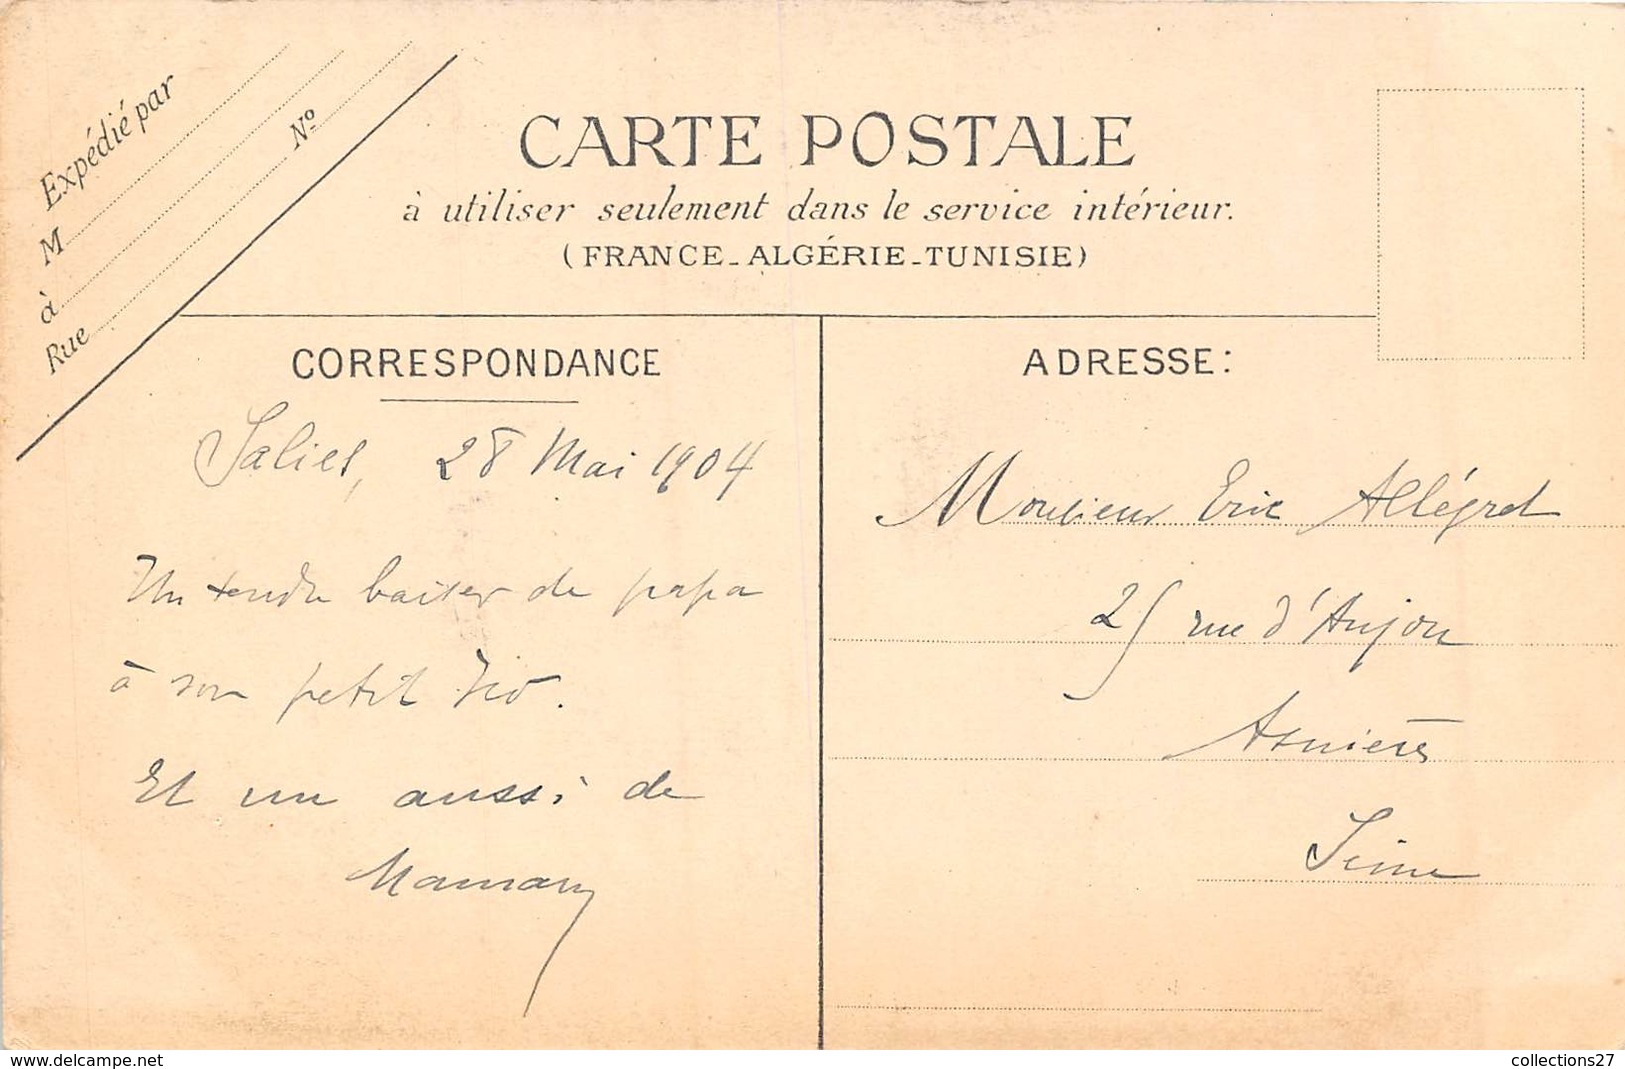 Expédié par
M
à
Rue Nº
CARTE POSTALE
à utiliser seulement dans le service intérieur.
(FRANCE-ALGÉRIE-TUNISIE)
CORRESPONDANCE
Salies, 28 Mai 1904
Un tendre baiser de papa
à son petit
Et un aussi de
Maman
ADRESSE:
Monsieur Eric Allégret
25 rue d'Anjou
Asnières
Seine
www.delcampe.net
collections27